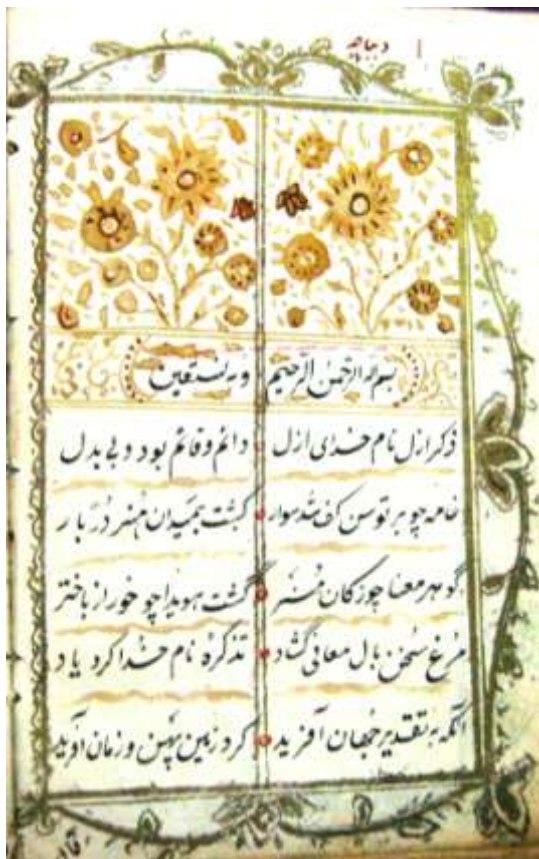 دیباچه
بسم الله الرحمن الرحیم وبه نستعین
ذکر ازل نام خدای ازل دائم و قائم بود و بی بدل
خامه چو بر توسن کف شد سوار گشت بمیدان هنر دُرّ بار
گوهر معنا چو ز کان هنر گشت هویدا چو خور از باختر
مرغ سخن بال معانی گشاد تذکره نام خدا کرد یاد
آنکه به تقدیر جهان آفرید کرد زمین پهن و زمان آفرید